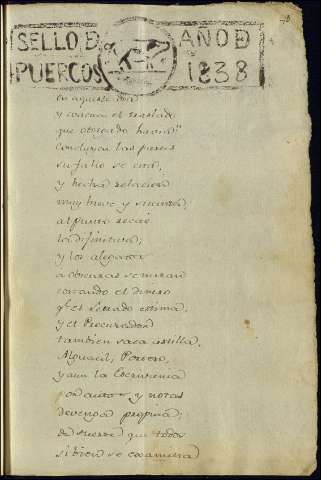 SELLO D AÑO D
PUERCOS 1838
en aqueste
y corena el traslado
que otorgado havia
concluyen las partes
su fallo se cita,
y hecha relacion
muy breve y sucinta,
al punto recae
la difinitiva;
y los alegatos
a obscuras se miran
contando el dinero
qᵉ el Letrado estima,
y el Procurador
tambien saca astilla.
Alguacil, Portero,
y aun la Escrivania
por autos y notas
devenga propina;
de suerte que todos
si bien se examina